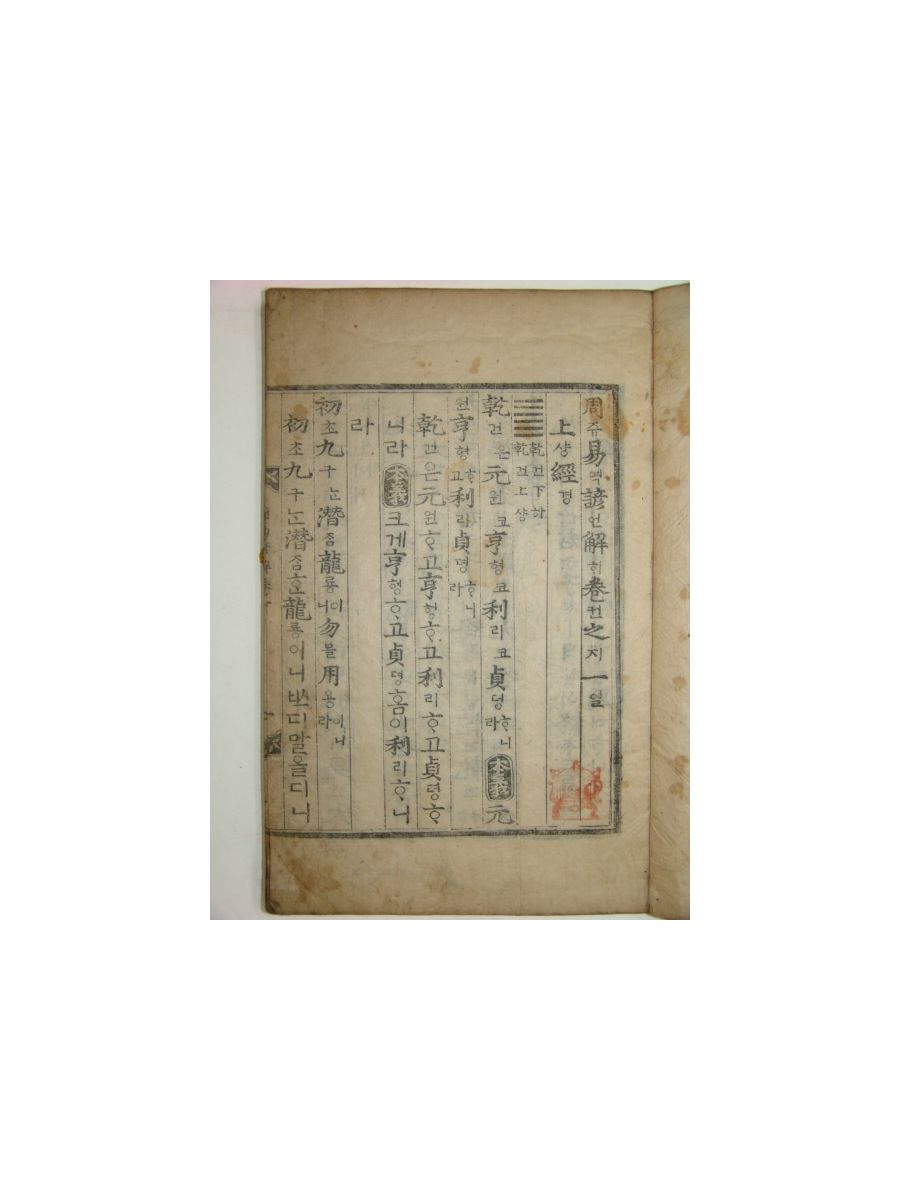 周쥬易역諺언解ᄒᆡ卷권之지一일
上샹經경
䷀乾건下하
乾건上샹
乾건은元원코亨형코利리코貞뎡ᄒᆞ니라本義元
원亨형ᄒᆞ고利리貞뎡ᄒᆞ니라
乾건은元원ᄒᆞ고亨형ᄒᆞ고利리ᄒᆞ고貞뎡ᄒᆞ
니라本義크게亨형ᄒᆞ고貞뎡홈이利리ᄒᆞ니
라
初초九구ᄂᆞᆫ潛ᄌᆞᆷ龍룡이니勿믈用용이니라
初초九구ᄂᆞᆫ潛ᄌᆞᆷᄒᆞᆫ龍룡이니ᄡᅳ디말올디니